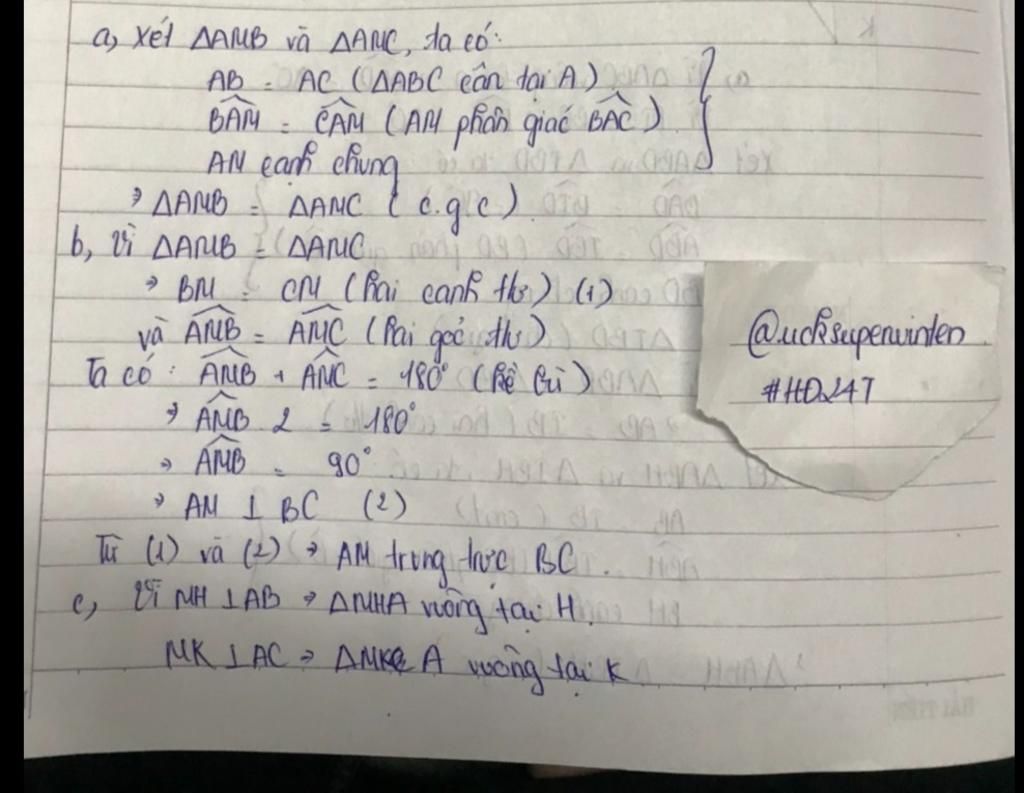 a, Xét ΔAMB và ΔAMC, ta có:
AB = AC (ΔABC cân tại A)
BÂM = CÂM (AM phân giác BÂC)
AM cạnh chung
→ ΔAMB = ΔAMC (c.g.c)
b, Vì ΔAMB = ΔAMC
→ BM = CM (hai cạnh thư) (1)
và AM̂B = AM̂C (hai góc thư)
Ta có: AM̂B + AM̂C = 180° (kề bù)
→ AM̂B 2 = 180°
→ AM̂B = 90°
→ AM ⊥ BC (2)
Từ (1) và (2) → AM trung trực BC.
c, Vì MH ⊥ AB → ΔMHA vuông tại H.
MK ⊥ AC → ΔMKA vuông tại K
#HD24T